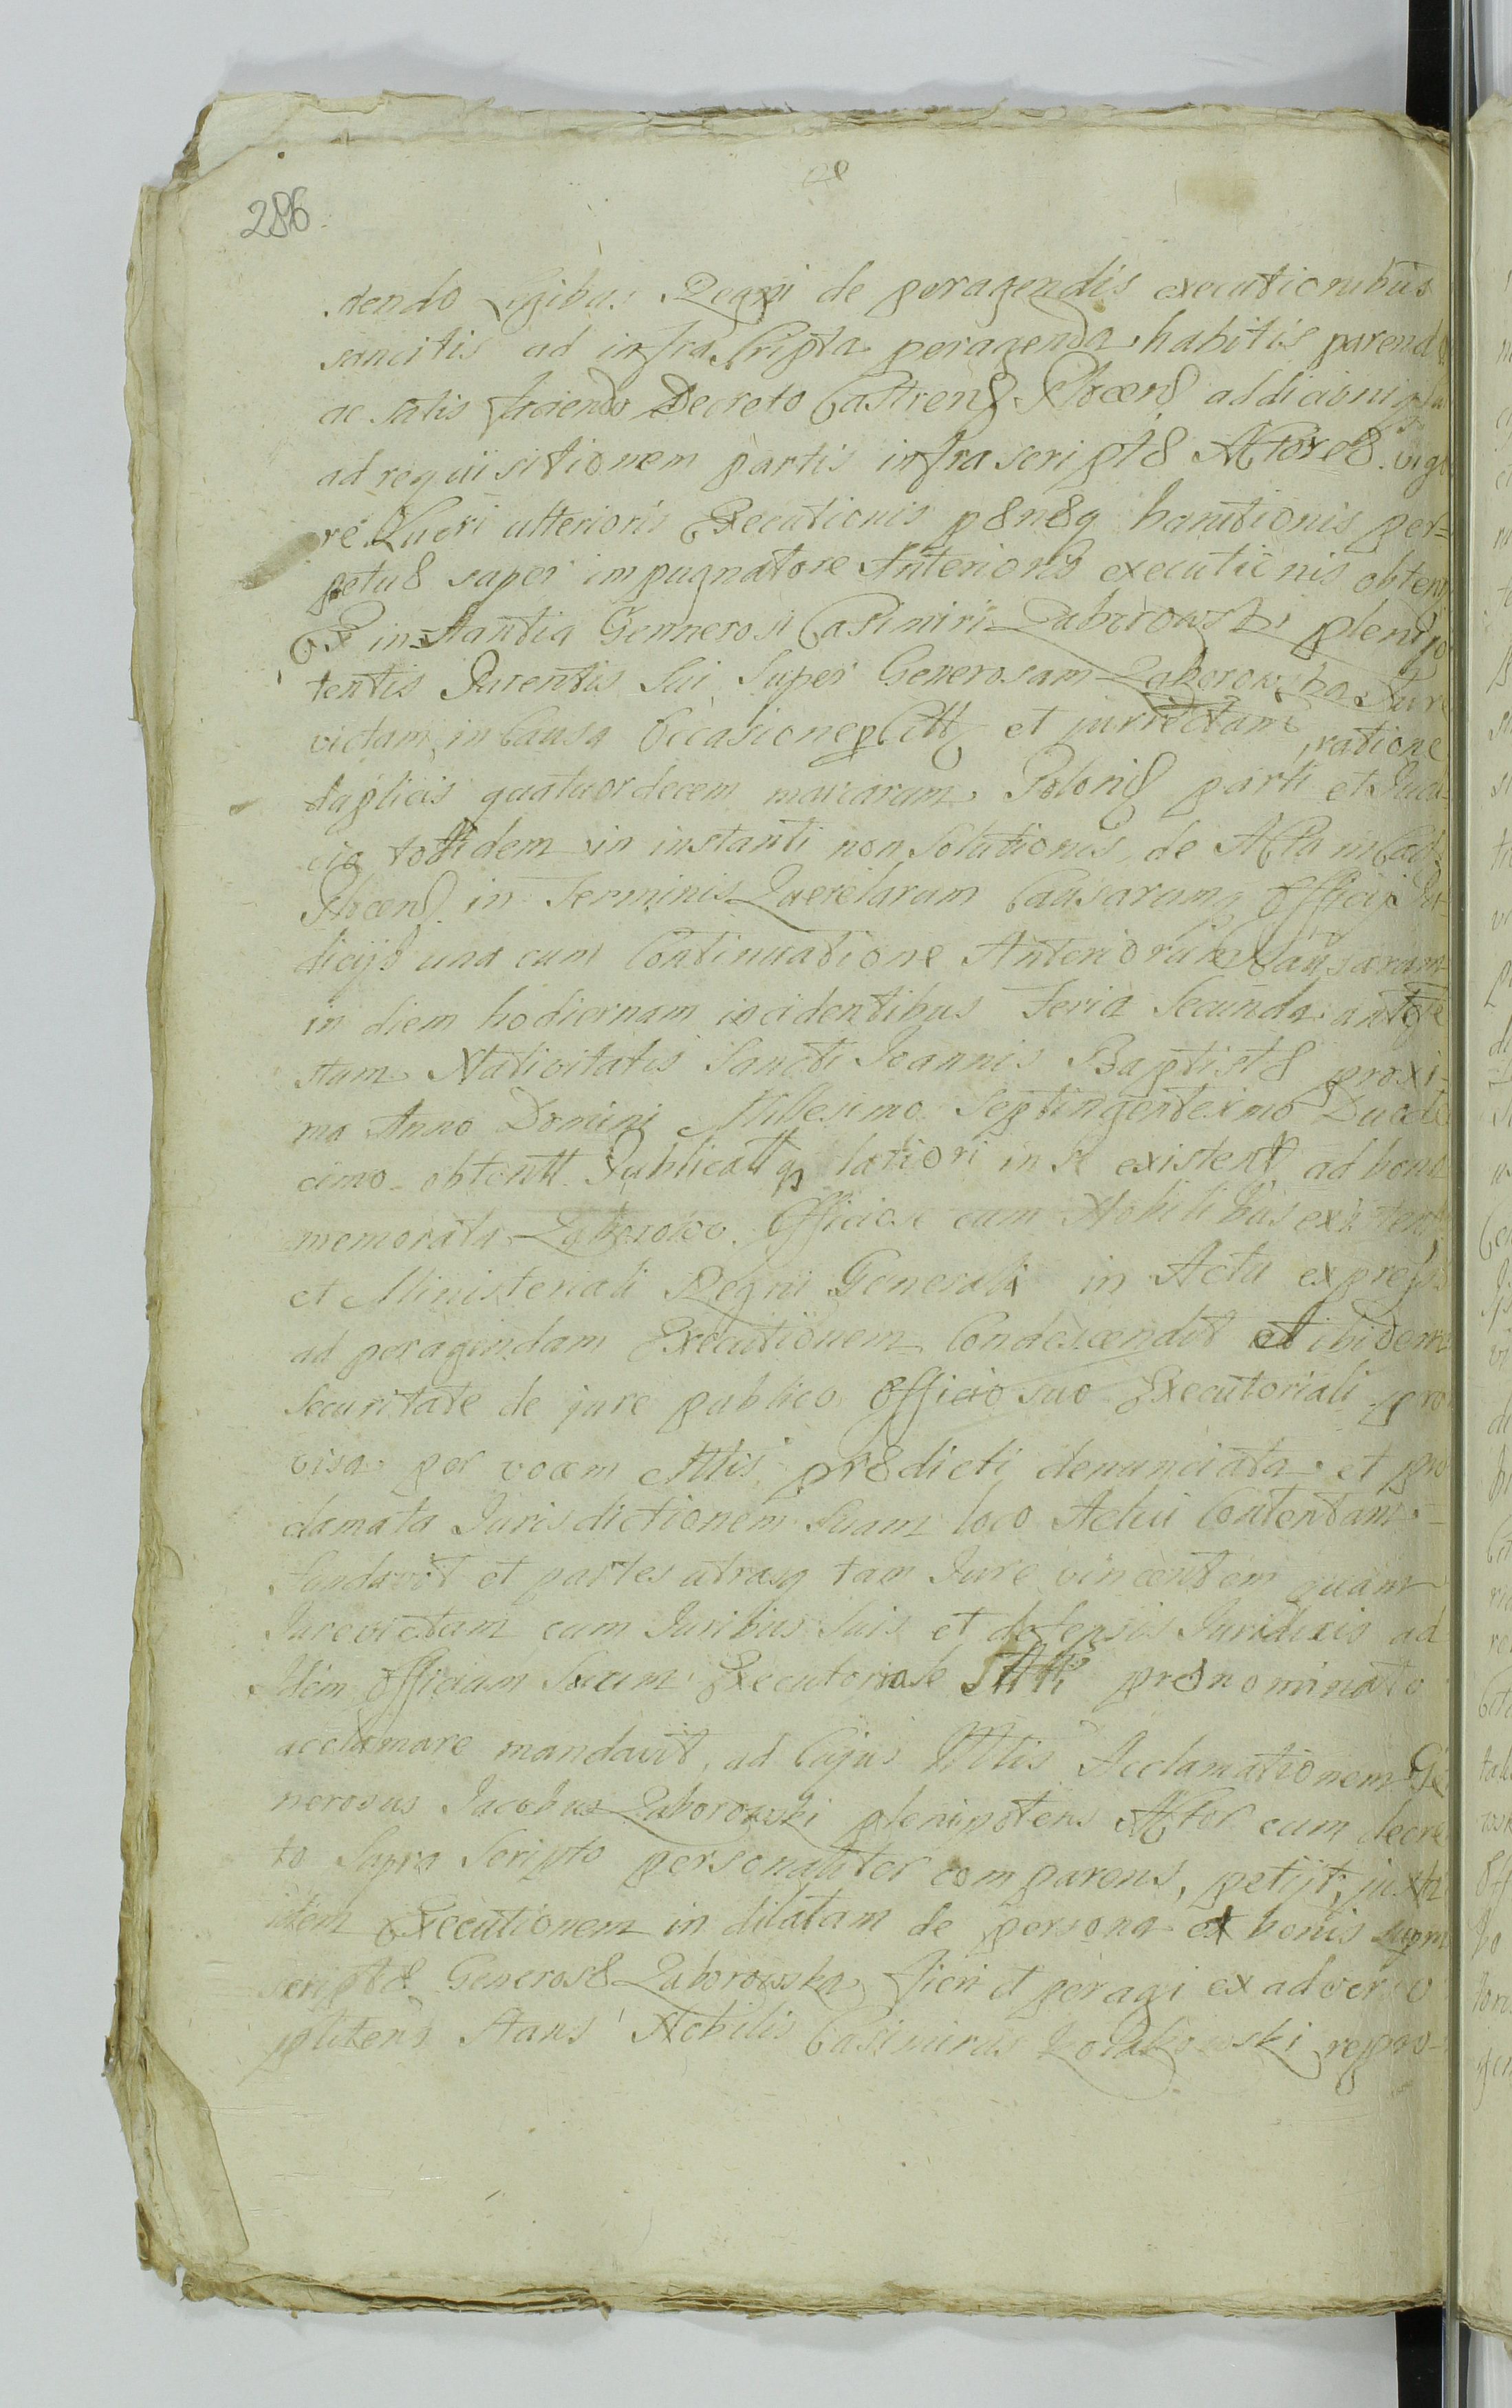 286
dendo Legibus Regni de peragendis executionibus
sancitis ad infra Scripta peragenda habitis parend
ac satis faciendo Decreto Castren Plocen
ad requisitionem partis infrascriptæ Actoreæ vigo
re Lucri ulterioris Executionis pænæq banitionis per=
petuæ super impugnatore Anterioris executionis obten
Ex instantia Gennerosi Casimiri Zaborowski plenipo
tentis Parentis Sui Super Generosam Zaborowska Jure
victam in Causa Occasione et ratione
duplicis quatuordecem marcarum Polonic parti et Judi
cio totidem in instanti non Solutionis de Acta in Cas
Plocen in Terminis Querelarum Causarumq Officij Ju=
dicijs una cum Continuatione Anteriorum Causarum
in diem hodiernam incidentibus Feria Secunda ante fe
stum Nativitatis Sancti Joannis Baptistæ proxi=
ma Anno Domini Millesimo Septingentesimo Duode
cimo obtentt Publicattq latiori in se existen ad bona
memorata Zaborowo Officiose cum Nobilibus existen
et Ministeriali Regni Generali in Actu expressis
ad peragendam Executionem Condescendit et ibidem
Securitate de jure publico Officio suo Executoriali pro
visa per vocem Mttlis prædicti denunciata et pro
clamata Jurisdictionem Suam loco Actui Contentam
Fundavit et partes utrasq tam Jure vincentem quam
Jurevictam cum Juribus Suis et defensis Juridicis ad
Idem Officium Suum Executoriale prænominato
acclamare mandavit, ad Cujus Mttlis Acclamationem Ge
nerosus Jacobus Zaborowski plenipotens Actor cum decre
to Supra Scripto personaliter comparens, petijt, juxta
idem Executionem in dilatam de persona et bonis supra
scriptæ Generosæ Zaborowska fieri et peragi ex adverso
ptitens Stans Nobilis Casimirus repro=